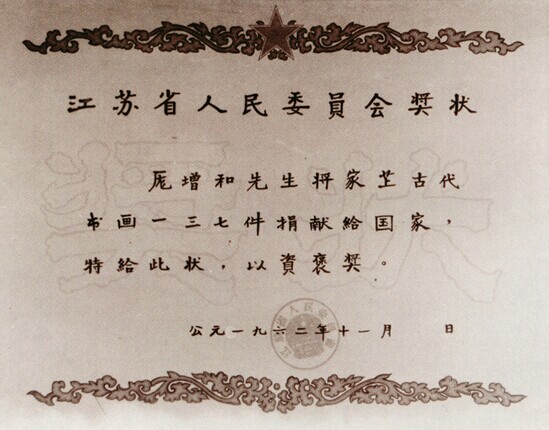 江苏省人民委員会奖状
庞增和先生将家藏古代
书画一三七件捐献给国家，
特给此状，以資褒奖。
公元一九六二年十一月　日
奖状